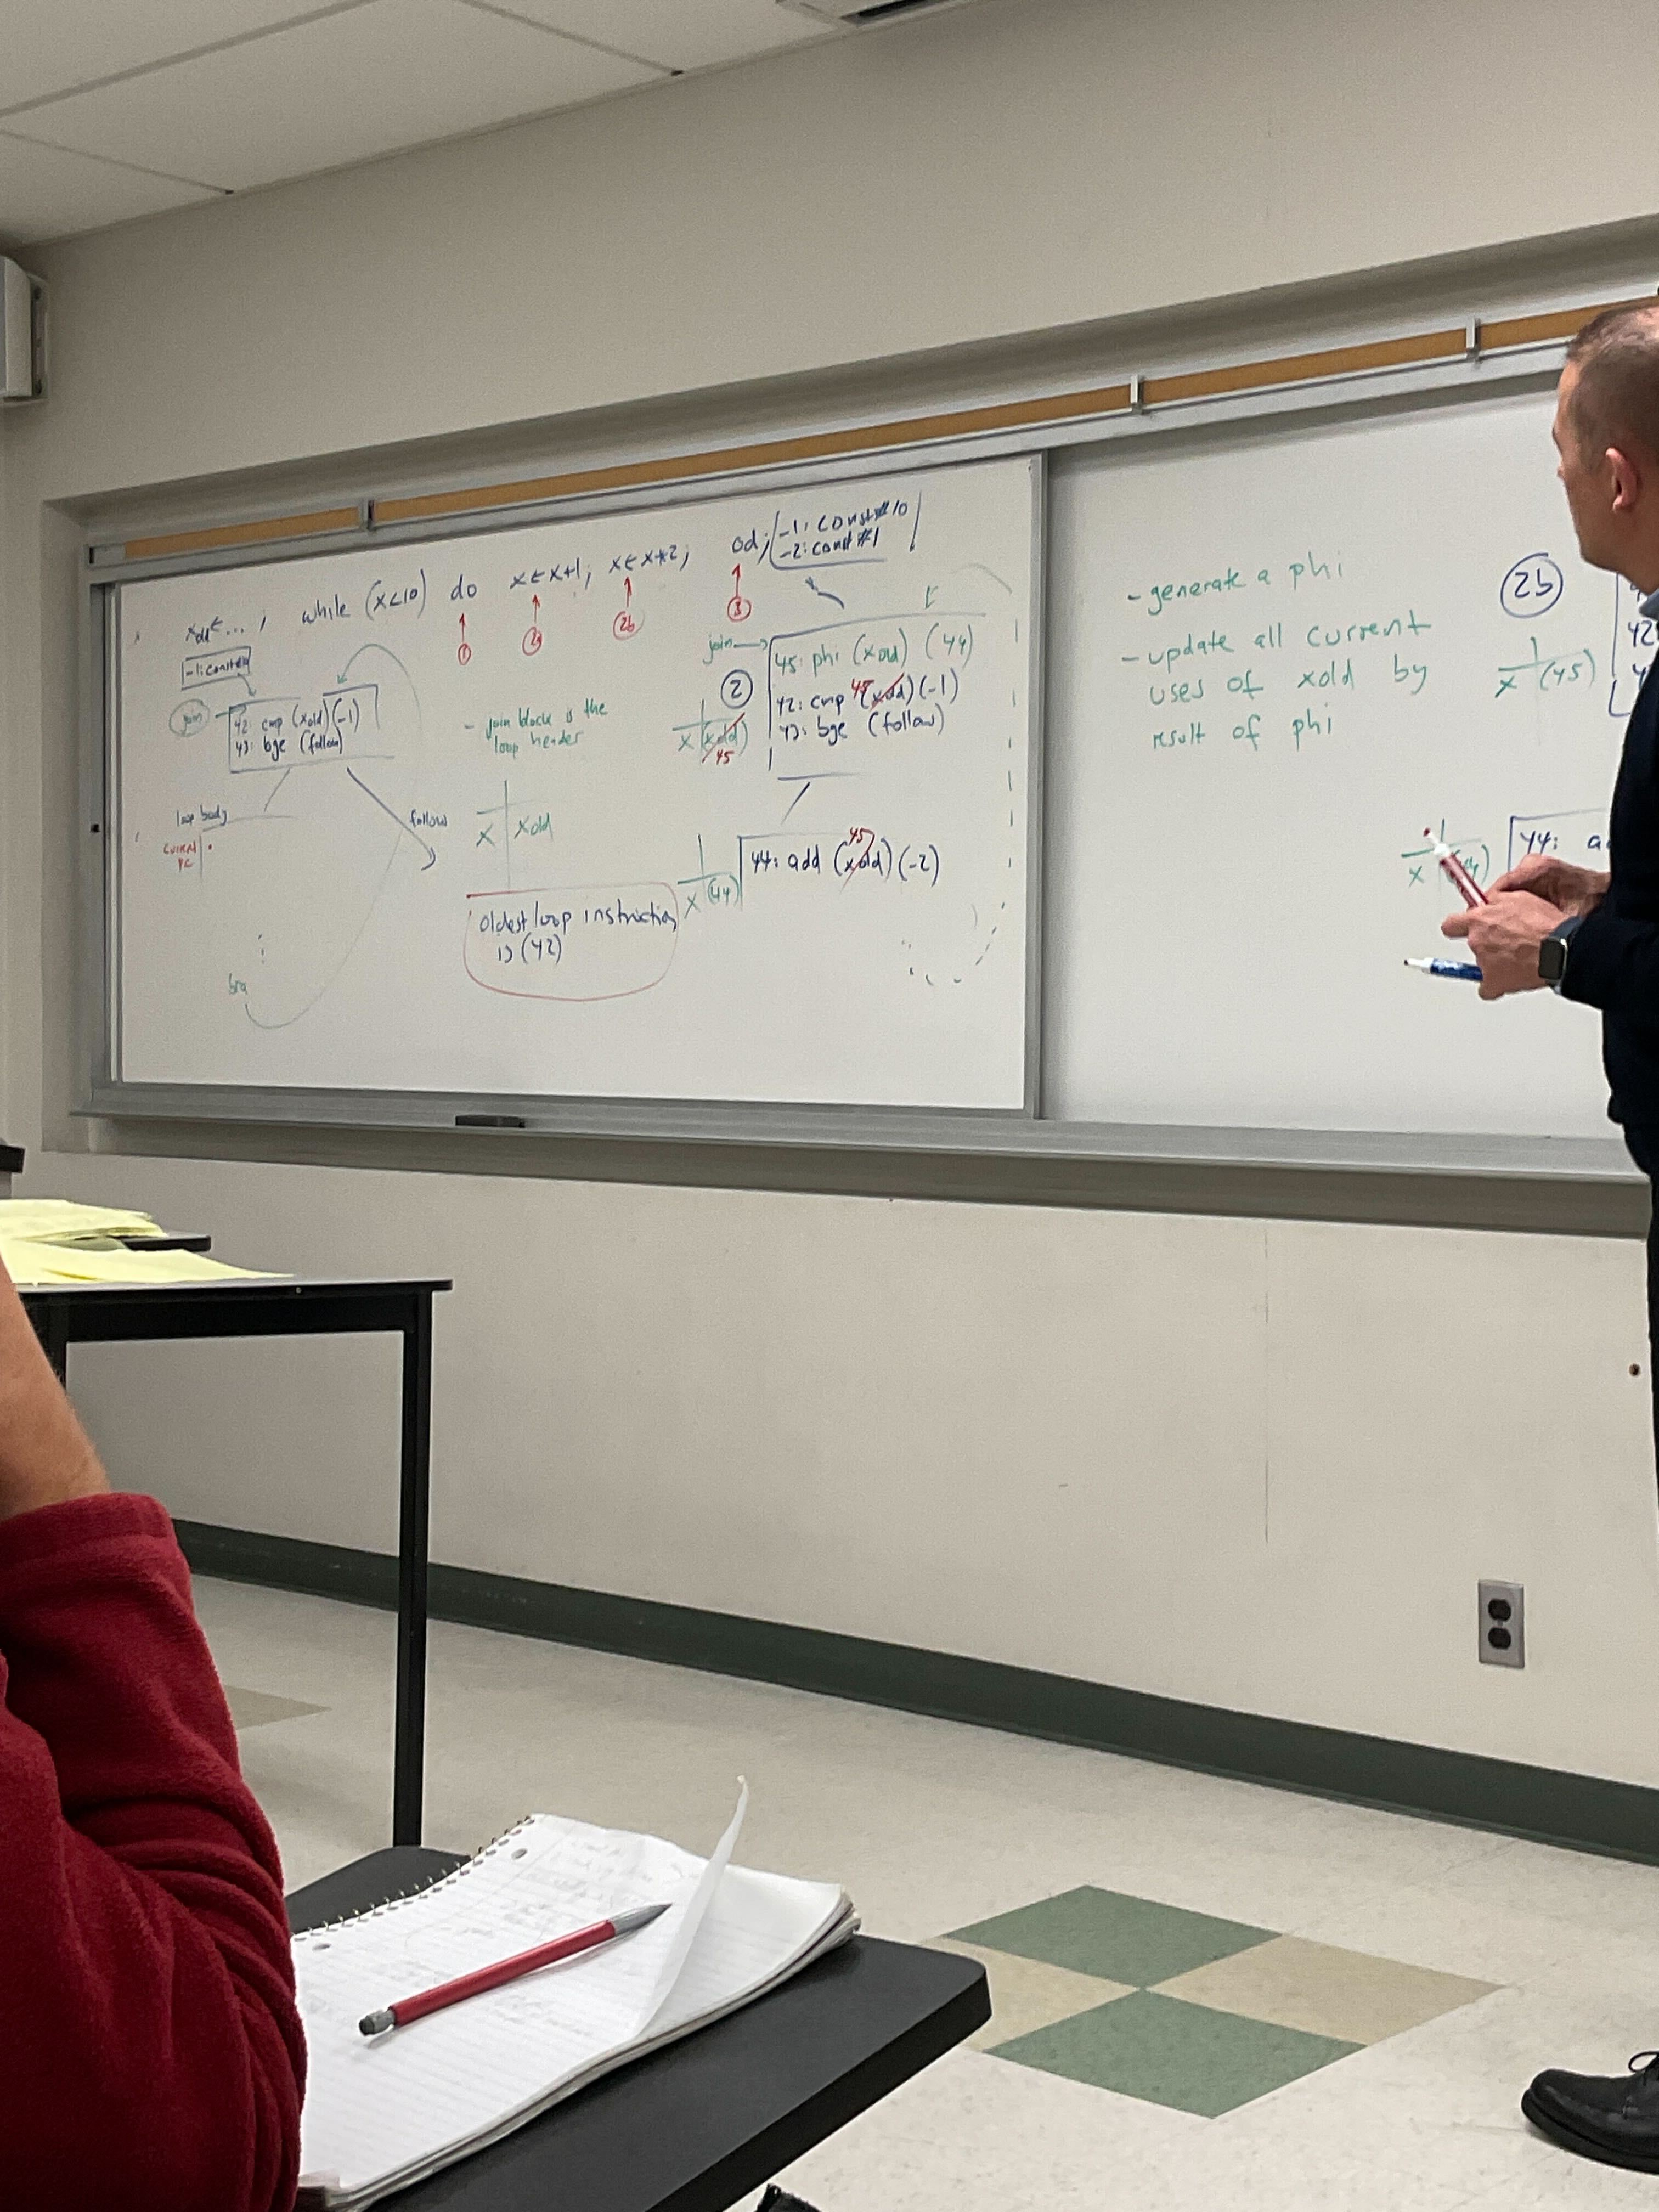 xold ← ... ; while (x<10) do x←x+1; x←x*2; od;
-1: const#10
-2: const#1
1
2a
2b
3
-1: const
join
42: cmp (xold)(-1)
43: bge (follow)
loop body
current
PC
follow
bra
- join block is the
loop header
x xold
oldest loop instruction
is (42)
join
2
45: phi (xold) (44)
42: cmp 45 (xold) (-1)
43: bge (follow)
x (xold)
45
45
44: add (xold) (-2)
x (44)
- generate a phi
- update all current
uses of xold by
result of phi
2b
x (45)
42
44: a
x